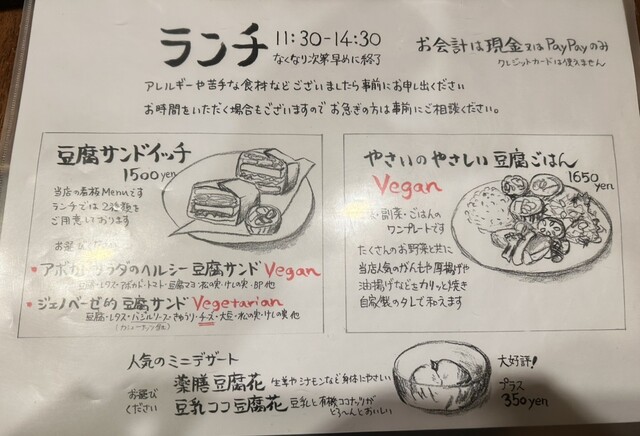 ランチ 11:30-14:30
なくなり次第早めに終了
お会計は現金又はPayPayのみ
クレジットカードは使えません
アレルギーや苦手な食材などございましたら事前にお申し出ください
お時間をいただく場合もございますので お急ぎの方は事前にご相談ください。
豆腐サンドイッチ
1500yen
当店の看板Menuです
ランチでは2種類を
ご用意しております
・アボカドサラダのヘルシー豆腐サンド Vegan
豆腐・レタス・アボカド・トマト・豆腐マヨ・松の実・けしの実・BP他
・ジェノベーゼ的豆腐サンド Vegetarian
豆腐・レタス・バジルソース・きゅうり・チーズ・大豆・松の実・けしの実 他
(カシューナッツ含む)
やさいのやさしい豆腐ごはん
1650yen
Vegan
副菜・ごはんの
ワンプレートです
たくさんのお野菜と共に
当店人気のがんもや厚揚げや
油揚げなどをカリッと焼き
自家製のタレで和えます
人気のミニデザート
お選び
ください
薬膳豆腐花 生姜やシナモンなど身体にやさしい
豆乳ココ豆腐花 豆乳と有機ココナッツが
とろ〜んとおいしい
大好評!
プラス
350yen